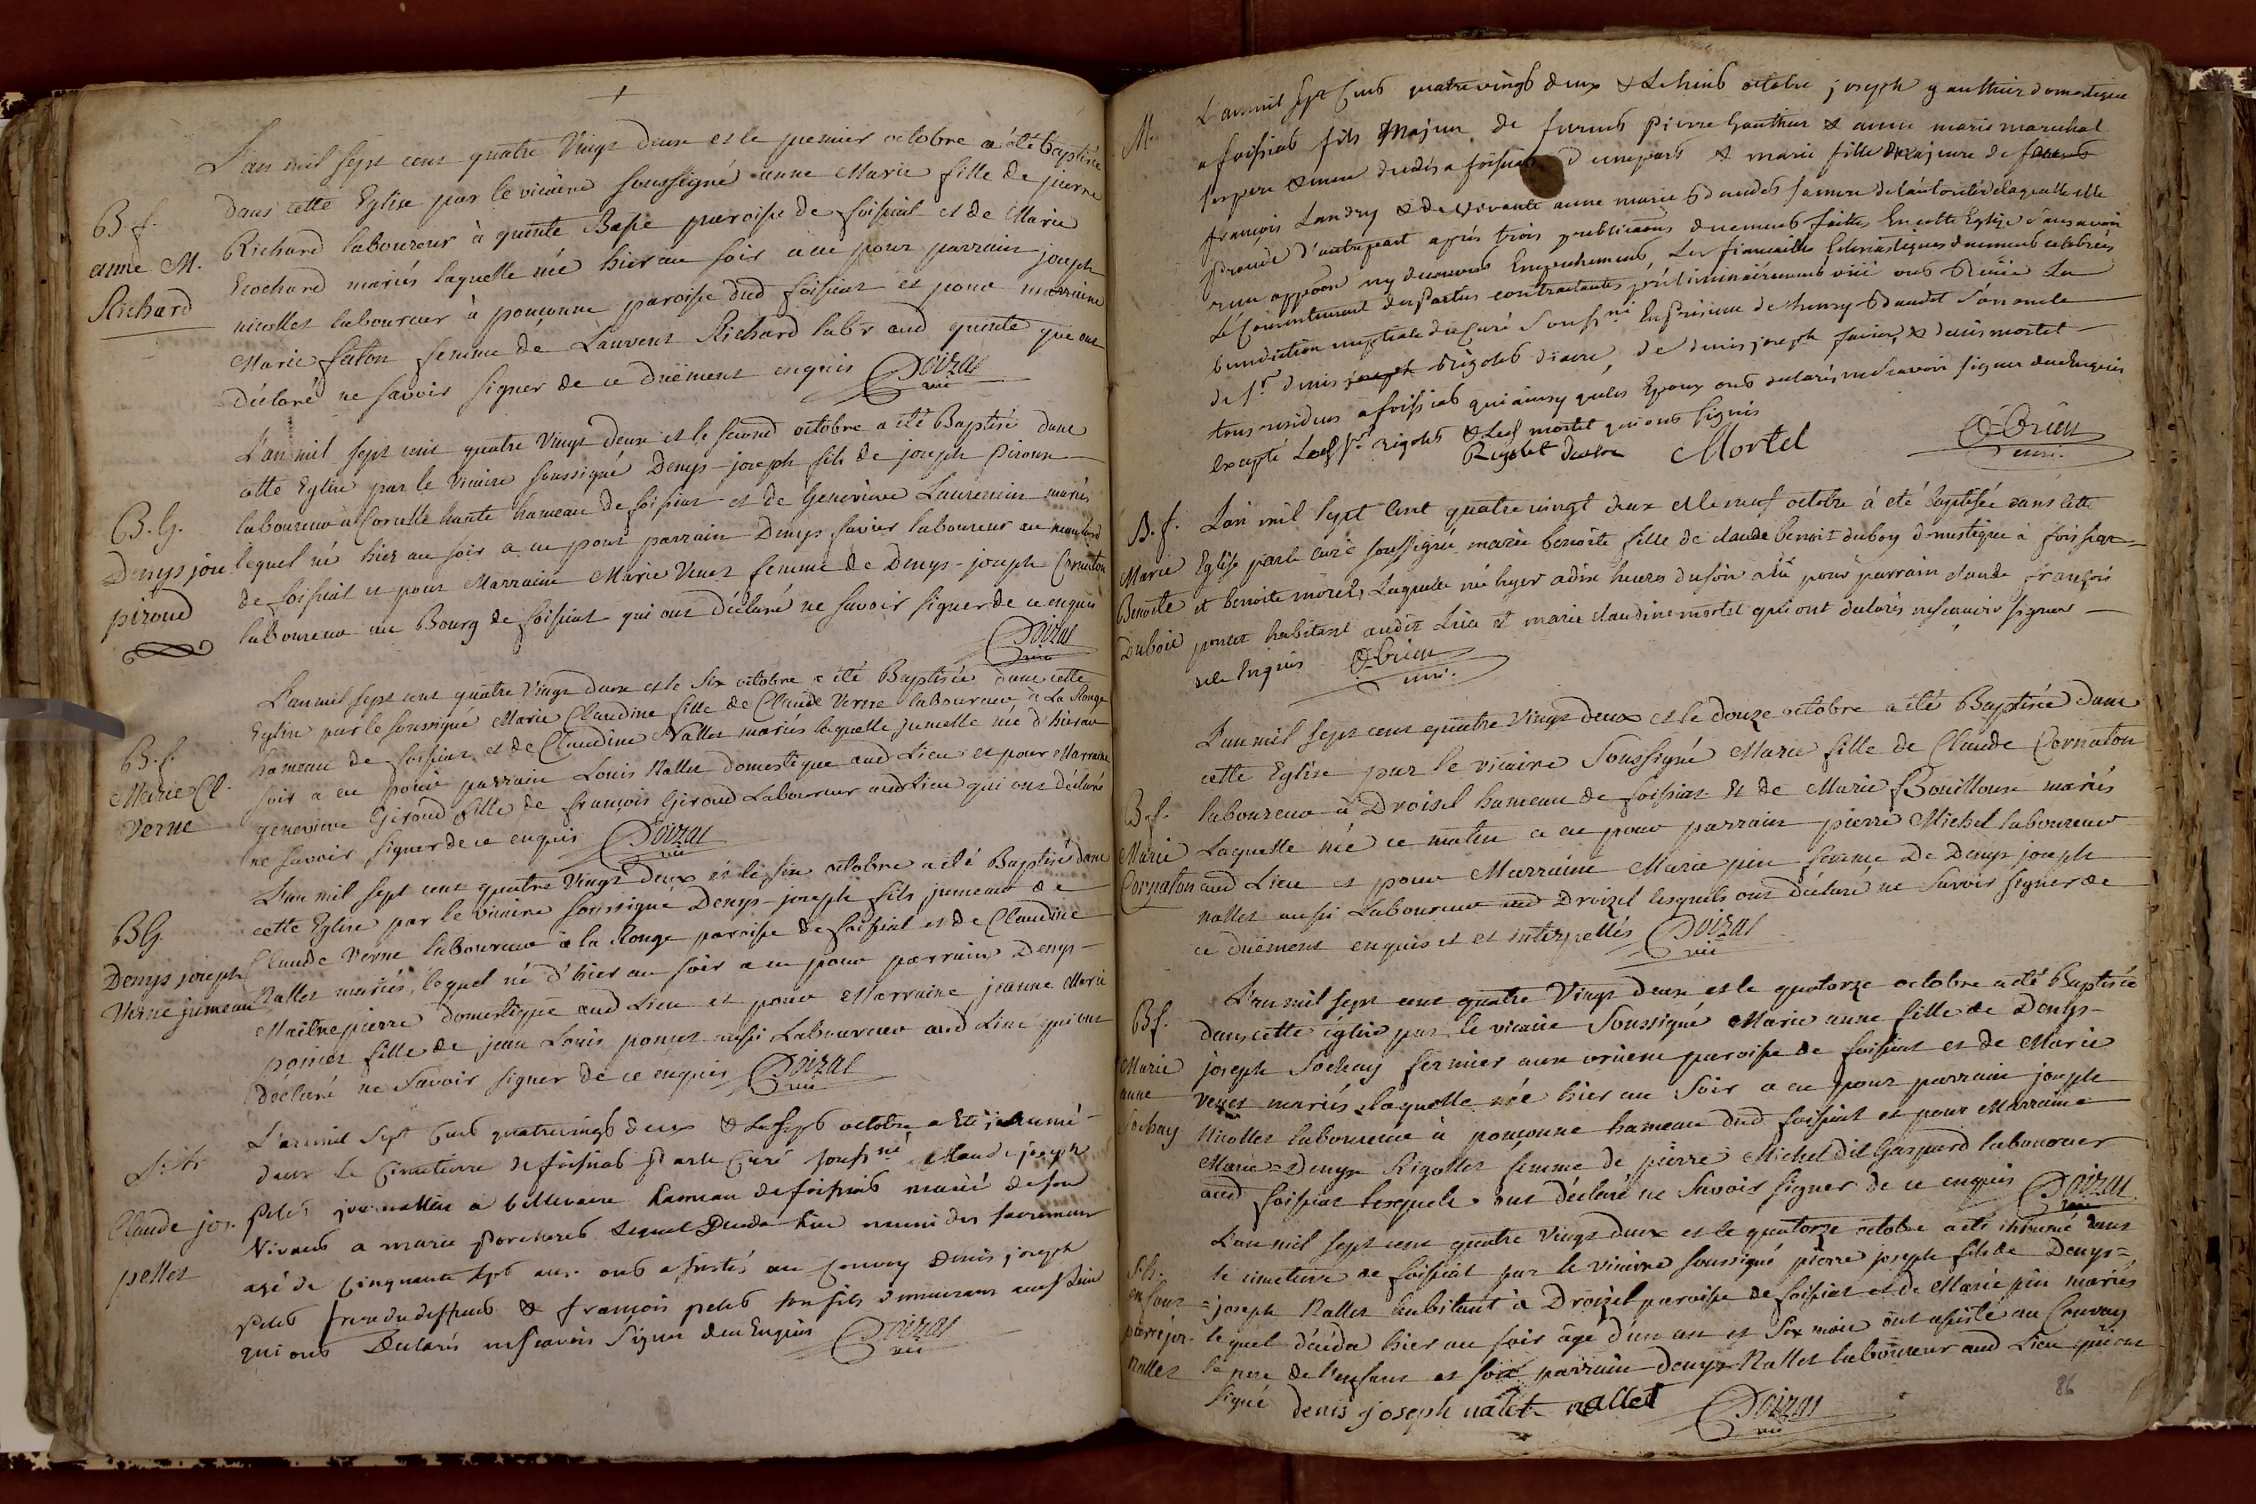 L'an mil sept cent quatre Vingt deux et le premier octobre a été baptisée
dans cette Eglise par le vicaire soussigné anne Marie fille de pierre
B. f.
anne M.
Richard
Richard laboureur à quinte Basse paroisse de foissiat et de Marie
Ecochard mariés laquelle née hier au soir a eu pour parrain joseph
nicollet laboureur à ponconne paroisse dud foissiat et pour marraine
Marie femme de Laurent Richard labr aud quinte qui ont
déclaré ne savoir signer de ce duëment enquis Doizat
vic
L'an mil sept cent quatre Vingt deux et le second octobre a été Baptisé dans
cette Eglise par le Vicaire soussigné Denys-joseph fils de joseph Piroud
B. G.
Denys jos
piroud
laboureur à Corcelle haute hameau de foissiat et de Genevieve Laurencin mariés
lequel né hier au soir a eu pour parrain Denys favier laboureur au
de foissiat et pour Marraine Marie Venet femme de Denys-joseph Cornaton
laboureur au Bourg de foissiat qui ont déclaré ne savoir signer de ce enquis
Doizat
vic
L'an mil sept cent quatre Vingt deux et le six octobre a été Baptisée dans cette
Eglise par le soussigné Marie Claudine fille de Claude Verne laboureur à La Rouge
B. f.
Marie Cl.
Verne
hameau de foissiat et de Claudine Nallet mariés laquelle jumelle née d'hier au
soir a eu pour parrain Louis Nallet domestique aud Lieu et pour Marraine
genevieve Giroud fille de françois Giroud Laboureur aud Lieu qui ont déclaré
ne savoir signer de ce enquis Doizat
vic
L'an mil sept cent quatre Vingt deux et le six octobre a été Baptisé dans
cette Eglise par le vicaire soussigné Denys-joseph fils jumeau de
B G.
Denys joseph
Verne jumeau
Claude Verne laboureur à la Rouge paroisse de foissiat et de Claudine
Nallet mariés, lequel né d'hier au soir a eu pour parrain Denys-
Maitrepierre domestique aud Lieu et pour Marraine jeanne Marie
poncet fille de jean Louis poncet aussi Laboureur aud Lieu qui ont
déclaré ne Savoir signer de ce enquis Doizat
vic
L'an mil Sept Cent quatrevingt deux & le sept octobre a Eté inhumé
dans le Cimetierre de foissiat Par le Curé soussné Claude joseph
Claude jos.
pellet
pelet journallier a villeneuve hameau de foissiat marié de son
Vivant a marie lequel Deceda hier muni des sacremens
agé de Cinquante sept ans. ont assistés au Convoy Denis joseph
pelet frere du deffunt & françois pelet son fils demeurans aud Lieu
qui ont Declarés ne scavoir signer deu Enquis Doizat
vic
M.
L'an mil sept Cent quatrevingt deux & Le huit octobre joseph gauthier domestique
a foissiat fils Majeur de furent pierre Gauthier & anne marie marechal
ses pere & mere decedés a foissiat d'une part & marie fille majeure de
françois Landry & de vivante anne marie Baudet sa mere de l'autorité de laquelle elle
procede d'autrepart après trois publications duement faites En cette Eglize sans avoir
reçu opposon ny decouvert Empechement, Les fiancailles Eclesiastiques duement celebrées
Le Consentement des Parties contractantes préliminairement oüii ont Reçüe La
benediction nuptiale du Curé Soussné En présence de Baudet son oncle
de Sr. denis joseph Rigolet diacre, de denis joseph favier, & denis mortel
tous residens a foissiat qui ainsy que les Epoux ont declarés ne scavoir signer enquis
Excepté Led Sr. rigolet & Led mortel qui ont signés
Rigolet diacre Mortel O-brien
curé.
B. f.
Marie
Benoite
Duboic
L'an mil sept cent quatre vingt deux et le neuf octobre à été baptisée dans cette
Eglise par le curé soussigné marie benoite fille de claude benoit duboy domestique à foissiat
et benoite morel, Laquelle née hyer a dix heures du soir a eu pour parrain claude françois
poncet habitant audit Lieu et marie claudine mortel qui ont declarés ne scavoir signer
de ce Enquis O-brien
curé.
L'an mil sept cent quatre Vingt deux et le douze octobre a été Baptisée dans
cette Eglise par le vicaire Soussigné Marie fille de Claude Cornaton
B. f.
Marie
Cornaton
laboureur à Droisel hameau de foissiat et de Marie Bouilloux mariés
Laquelle née ce matin a eu pour parrain pierre Michel laboureur
aud Lieu et pour Marraine Marie pin femme De Denys joseph
nallet aussi Laboureur aud Droizel lesquels ont déclaré ne Savoir signer de
ce duëment enquis et et interpellés Doizat
vic
L'an mil sept cent quatre Vingt deux et le quatorze octobre a été Baptisée
B f.
Marie
anne
Sochay
dans cette église par le vicaire Soussigné Marie anne fille de Denys-
joseph Sochay fermier aux paroisse de foissiat et de Marie
Venet mariés laquelle née hier au Soir a eu pour parrain joseph
Nicollet laboureur à ponconne hameau dud foissiat et pour Marraine
Marie-Denyse Rigollet femme de pierre Michel dit Gaspard laboureur
aud foissiat lesquels ont déclaré ne Savoir signer de ce enquis Doizat
vic
L'an mil sept cent quatre Vingt deux et le quatorze octobre a été inhumé dans
le cimetierre de foissiat par le vicaire soussigné pierre joseph fils de Denys=
Slt.
enfant
pierre jos.
nallet
=joseph Nallet habitant à Droizel paroisse de foissiat et de Marie pin mariés
lequel décéda hier au soir âgé d'un an et six mois ont assisté au Convoy
le pere de l'enfant et son parrain denys Nallet laboureur aud Lieu qui ont
signé denis joseph nalet nallet Doizat
vic
86